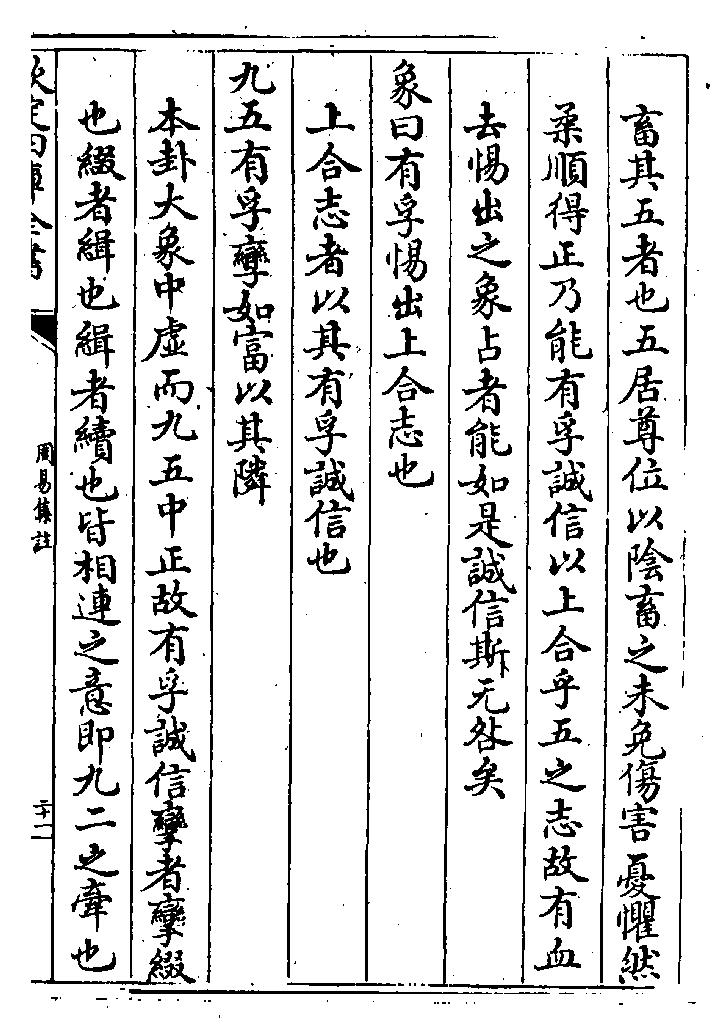 畜其五者也五居尊位以陰畜之未免傷害憂懼然
柔順得正乃能有孚誠信以上合乎五之志故有血
去惕出之象占者能如是誠信斯无咎矣
象曰有孚惕出上合志也
上合志者以其有孚誠信也
九五有孚攣如富以其隣
本卦大象中虛而九五中正故有孚誠信攣者攣綴
也綴者緝也緝者續也皆相連之意即九二之牽也
欽定四庫全書
周易集註
二十一